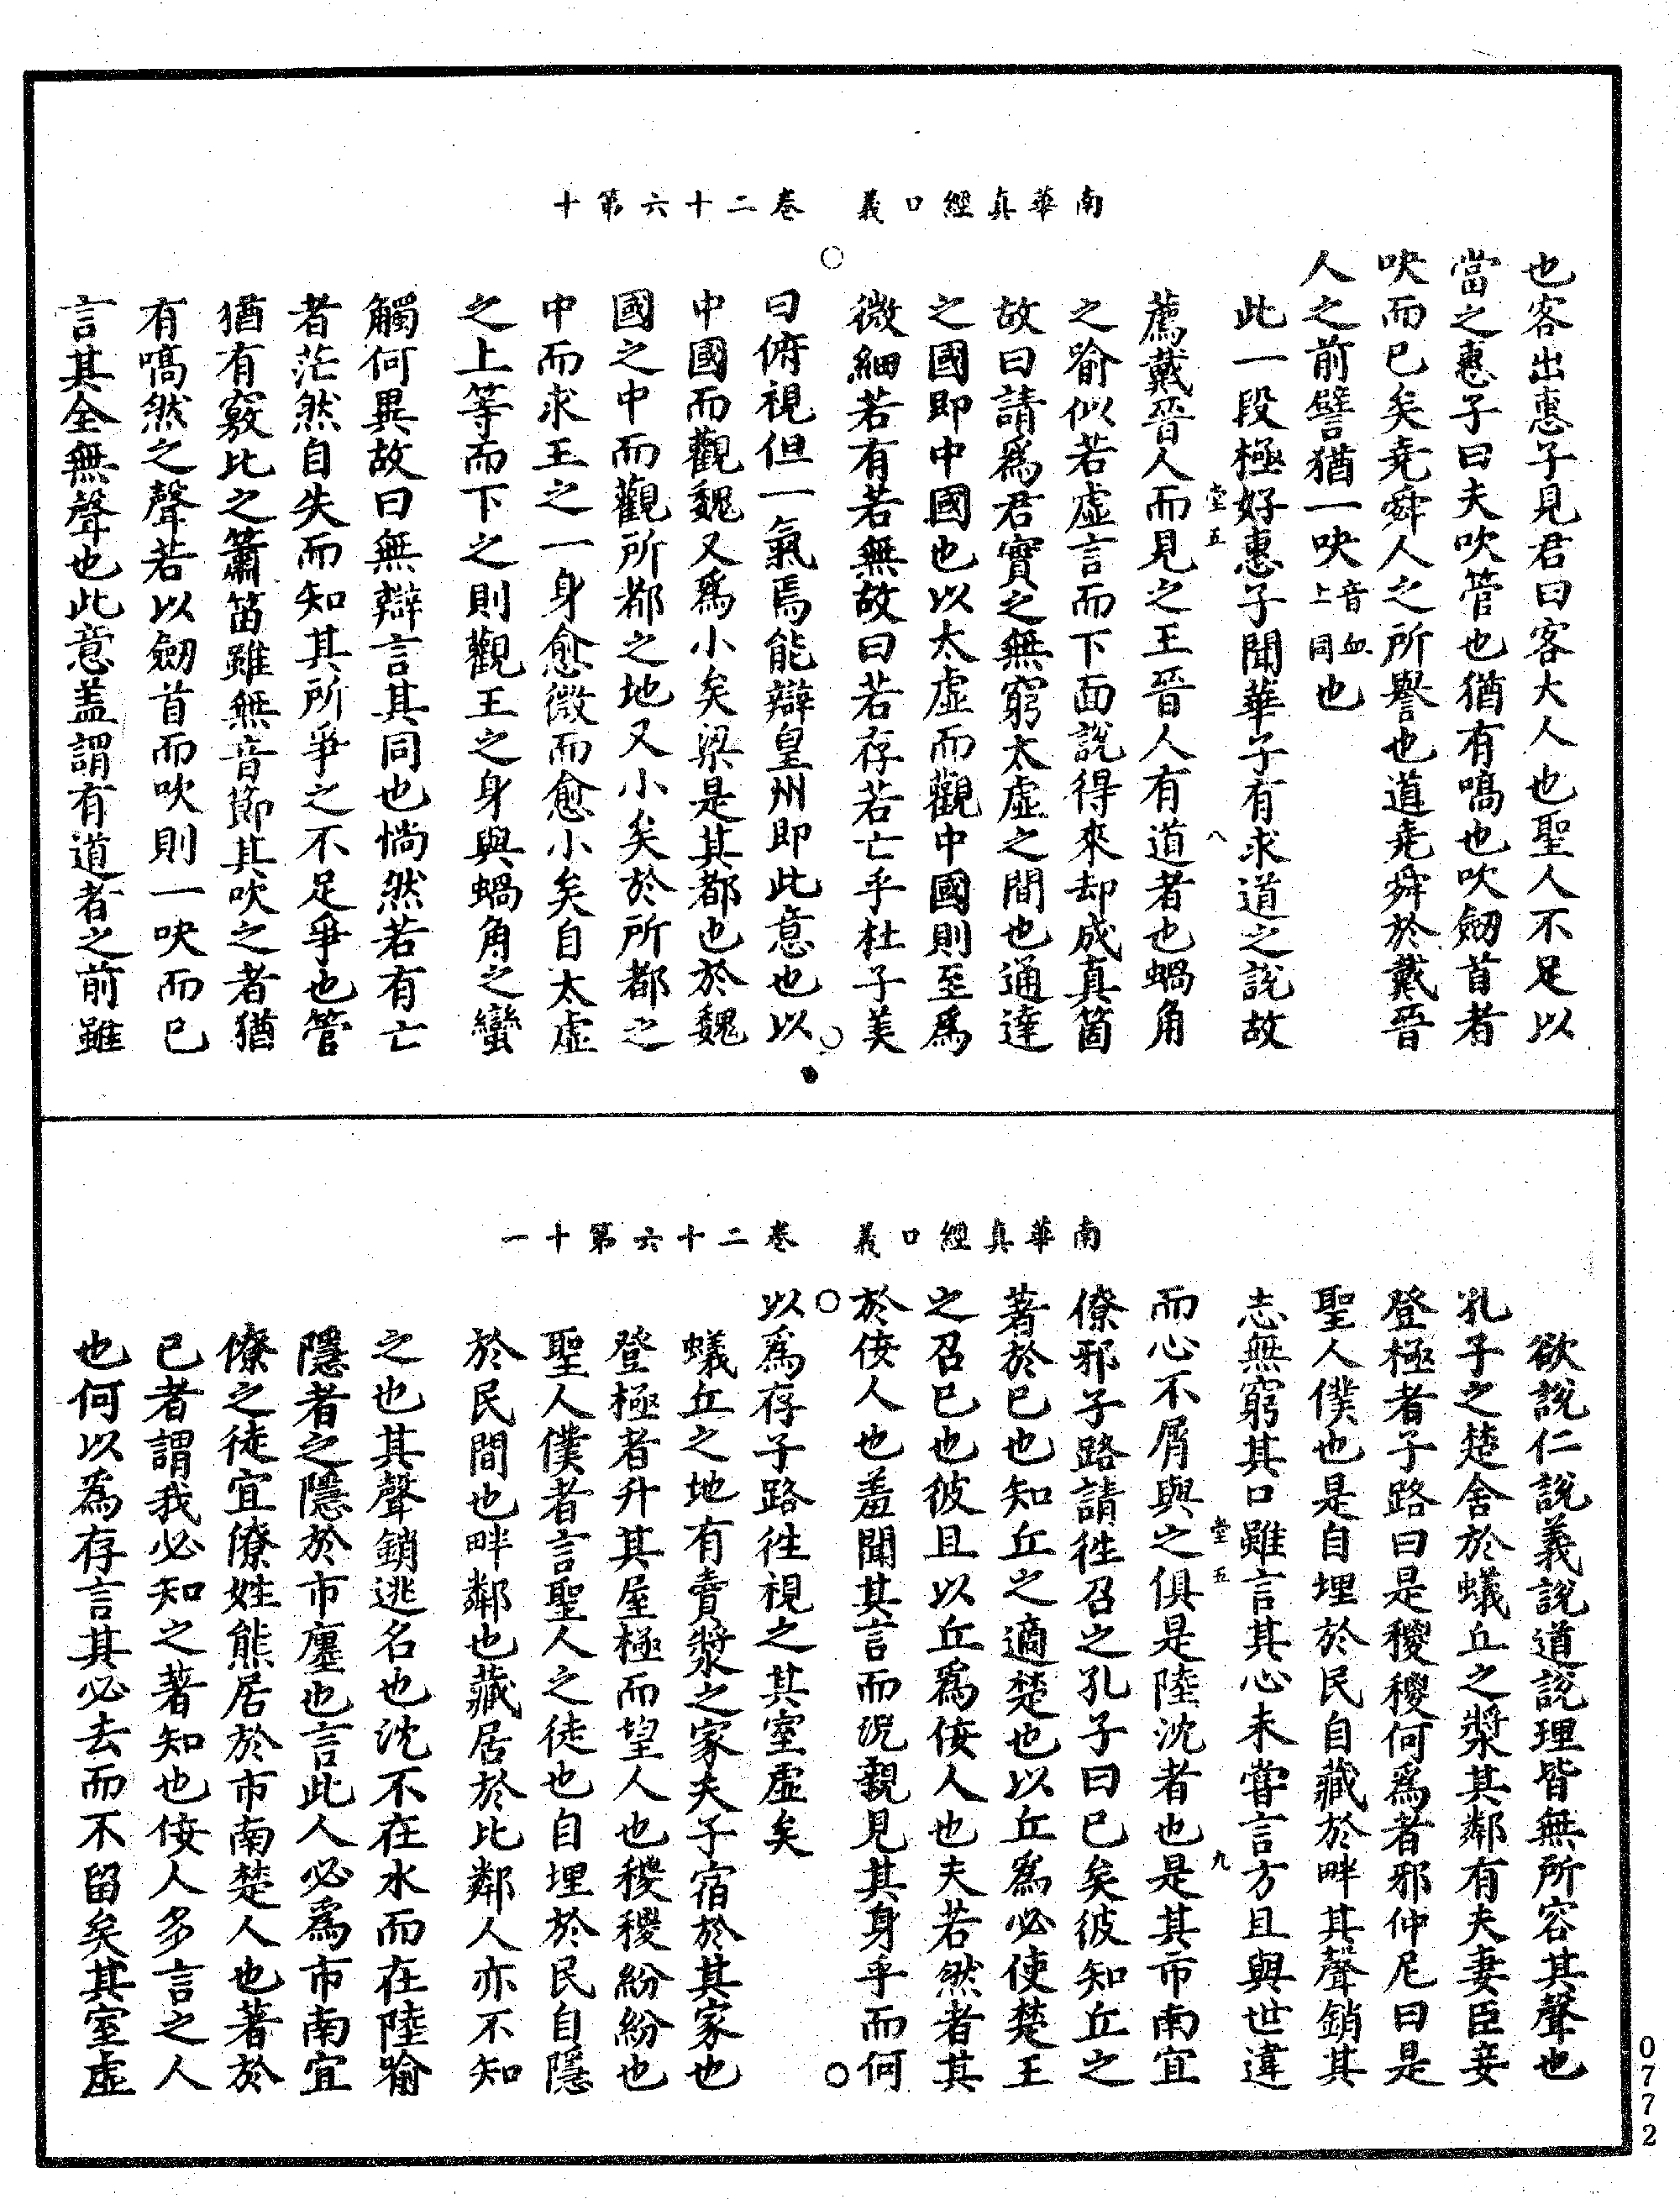 南華真經口義　卷二十六第十
也客出惠子見君曰客大人也聖人不足以
當之惠子曰夫吹管也猶有嗃也吹劒首者
吷而已矣堯舜人之所譽也道堯舜於戴晉
人之前譬猶一吷音血上同也
此一段極好惠子聞華子有求道之說故
堂五　八
薦戴晉人而見之王晉人有道者也蝸角
之喻似若虛言而下面說得來却成真箇
故曰請爲君實之無窮太虛之間也通達
之國即中國也以太虛而觀中國則至爲
微細若有若無故曰若存若亡乎杜子美
曰俯視但一氣焉能辯皇州即此意也以
中國而觀魏又爲小矣梁是其都也於魏
國之中而觀所都之地又小矣於所都之
中而求王之一身愈微而愈小矣自太虛
之上等而下之則觀王之身與蝸角之蠻
觸何異故曰無辯言其同也惝然若有亡
者茫然自失而知其所爭之不足爭也管
猶有竅比之簫笛雖無音節其吹之者猶
有嗃然之聲若以劒首而吹則一吷而已
言其全無聲也此意盖謂有道者之前雖
南華真經口義　卷二十六第十一
欲說仁說義說道說理皆無所容其聲也
孔子之楚舍於蟻丘之漿其鄰有夫妻臣妾
登極者子路曰是稯稯何爲者邪仲尼曰是
聖人僕也是自埋於民自藏於畔其聲銷其
志無窮其口雖言其心未嘗言方且與世違
堂五　九
而心不屑與之俱是陸沈者也是其市南宜
僚邪子路請徃召之孔子曰已矣彼知丘之
著於已也知丘之適楚也以丘爲必使楚王
之召已也彼且以丘爲佞人也夫若然者其
於佞人也羞聞其言而況親見其身乎而何
以爲存子路徃視之其室虛矣
蟻丘之地有賣漿之家夫子宿於其家也
登極者升其屋極而望人也稯稯紛紛也
聖人僕者言聖人之徒也自埋於民自隱
於民間也畔鄰也藏居於比鄰人亦不知
之也其聲銷逃名也沈不在水而在陸喻
隱者之隱於市廛也言此人必爲市南宜
僚之徒宜僚姓熊居於市南楚人也著於
已者謂我必知之著知也佞人多言之人
也何以爲存言其必去而不留矣其室虛
0772